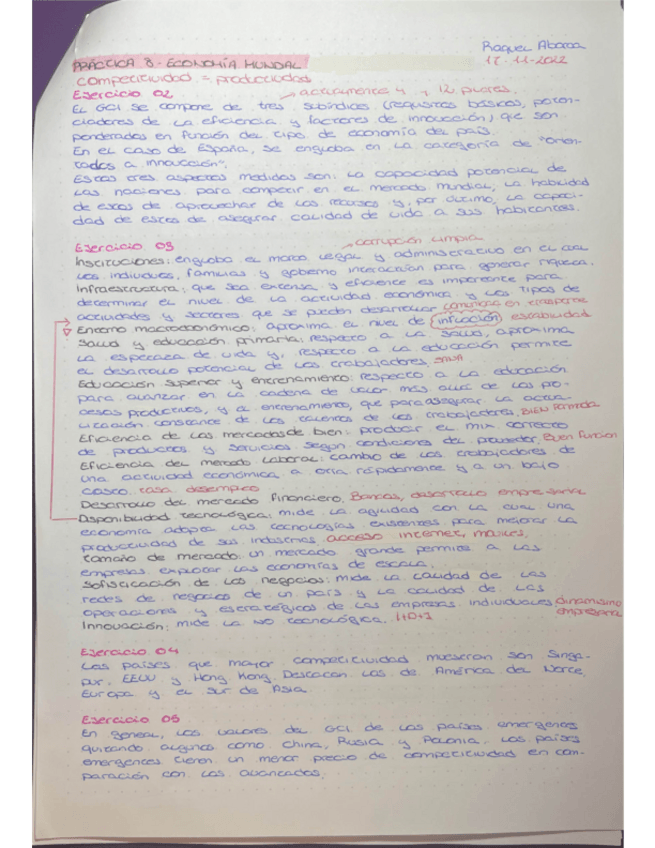 Raquel Abarca
PRÁCTICA 3 - ECONOMÍA MUNDIAL
17-11-2022
competitividad = productividad
Ejercicio 02
actualmente 4 y 12 pilares.
El GCI se compone de tres subíndices (requisitos básicos, poten-
ciadores de la eficiencia y factores de innovación) que son
ponderados en función del tipo de economía del país.
En el caso de España, se engloba en la categoría de "orien-
tados a innovación".
Estos tres aspectos medidos son: la capacidad potencial de
las naciones para competir en el mercado mundial, la habilidad
de estas de aprovechar de los recursos y, por último, la capaci-
dad de estos de asegurar calidad de vida a sus habitantes.
Ejercicio 03
corrupción limpia
Instituciones: engloba el marco legal y administrativo en el cual
los individuos, familias y gobierno interactúan para generar riqueza.
Infraestructura: que sea extensa y eficiente es importante para
determinar el nivel de la actividad económica y los tipos de
actividades y sectores que se pueden desarrollar
Entorno macroeconómico: aproxima el nivel de inflación estabilidad
Salud y educación primaria: respecto a la salud, aproxima
la esperanza de vida y, respecto a la educación permite
el desarrollo potencial de los trabajadores.
Educación superior y entrenamiento: respecto a la educación
para avanzar en la cadena de valor más allá de los pro-
cesos productivos, y al entrenamiento, que para asegurar la actua-
lización constante de los talentos de los trabajadores. BIEN Formada
Eficiencia de los mercados de bien: producir el mix correcto
de productos y servicios según condiciones del proveedor. Buen funcion
Eficiencia del mercado laboral: cambio de los trabajadores de
una actividad económica a otra rápidamente y a un bajo
costo. tasa desempleo
Desarrollo del mercado financiero. Bancos, desarrollo empresarial
Disponibilidad tecnológica: mide la agilidad con la cual una
economía adopta las tecnologías existentes para mejorar la
productividad de sus industrias acceso internet, móviles.
tamaño de mercado: un mercado grande permite a las
empresas explotar las economías de escala.
Sofisticación de los negocios: mide la calidad de las
redes de negocios de un país y la calidad de las
operaciones y estratégicos de las empresas individuales dinamismo
empresarial
Innovación: mide la no tecnológica. I+D+I
Ejercicio 04
Los países que mayor competitividad muestran son Singa-
pur, EEUU y Hong Kong. Destacan los de América del Norte,
Europa y el sur de Asia
Ejercicio 05
En general, los valores del GCI de los países emergentes
quitando algunos como China, Rusia y Polonia. Los países
emergentes tienen un menor precio de competitividad en com-
paración con los avanzados.